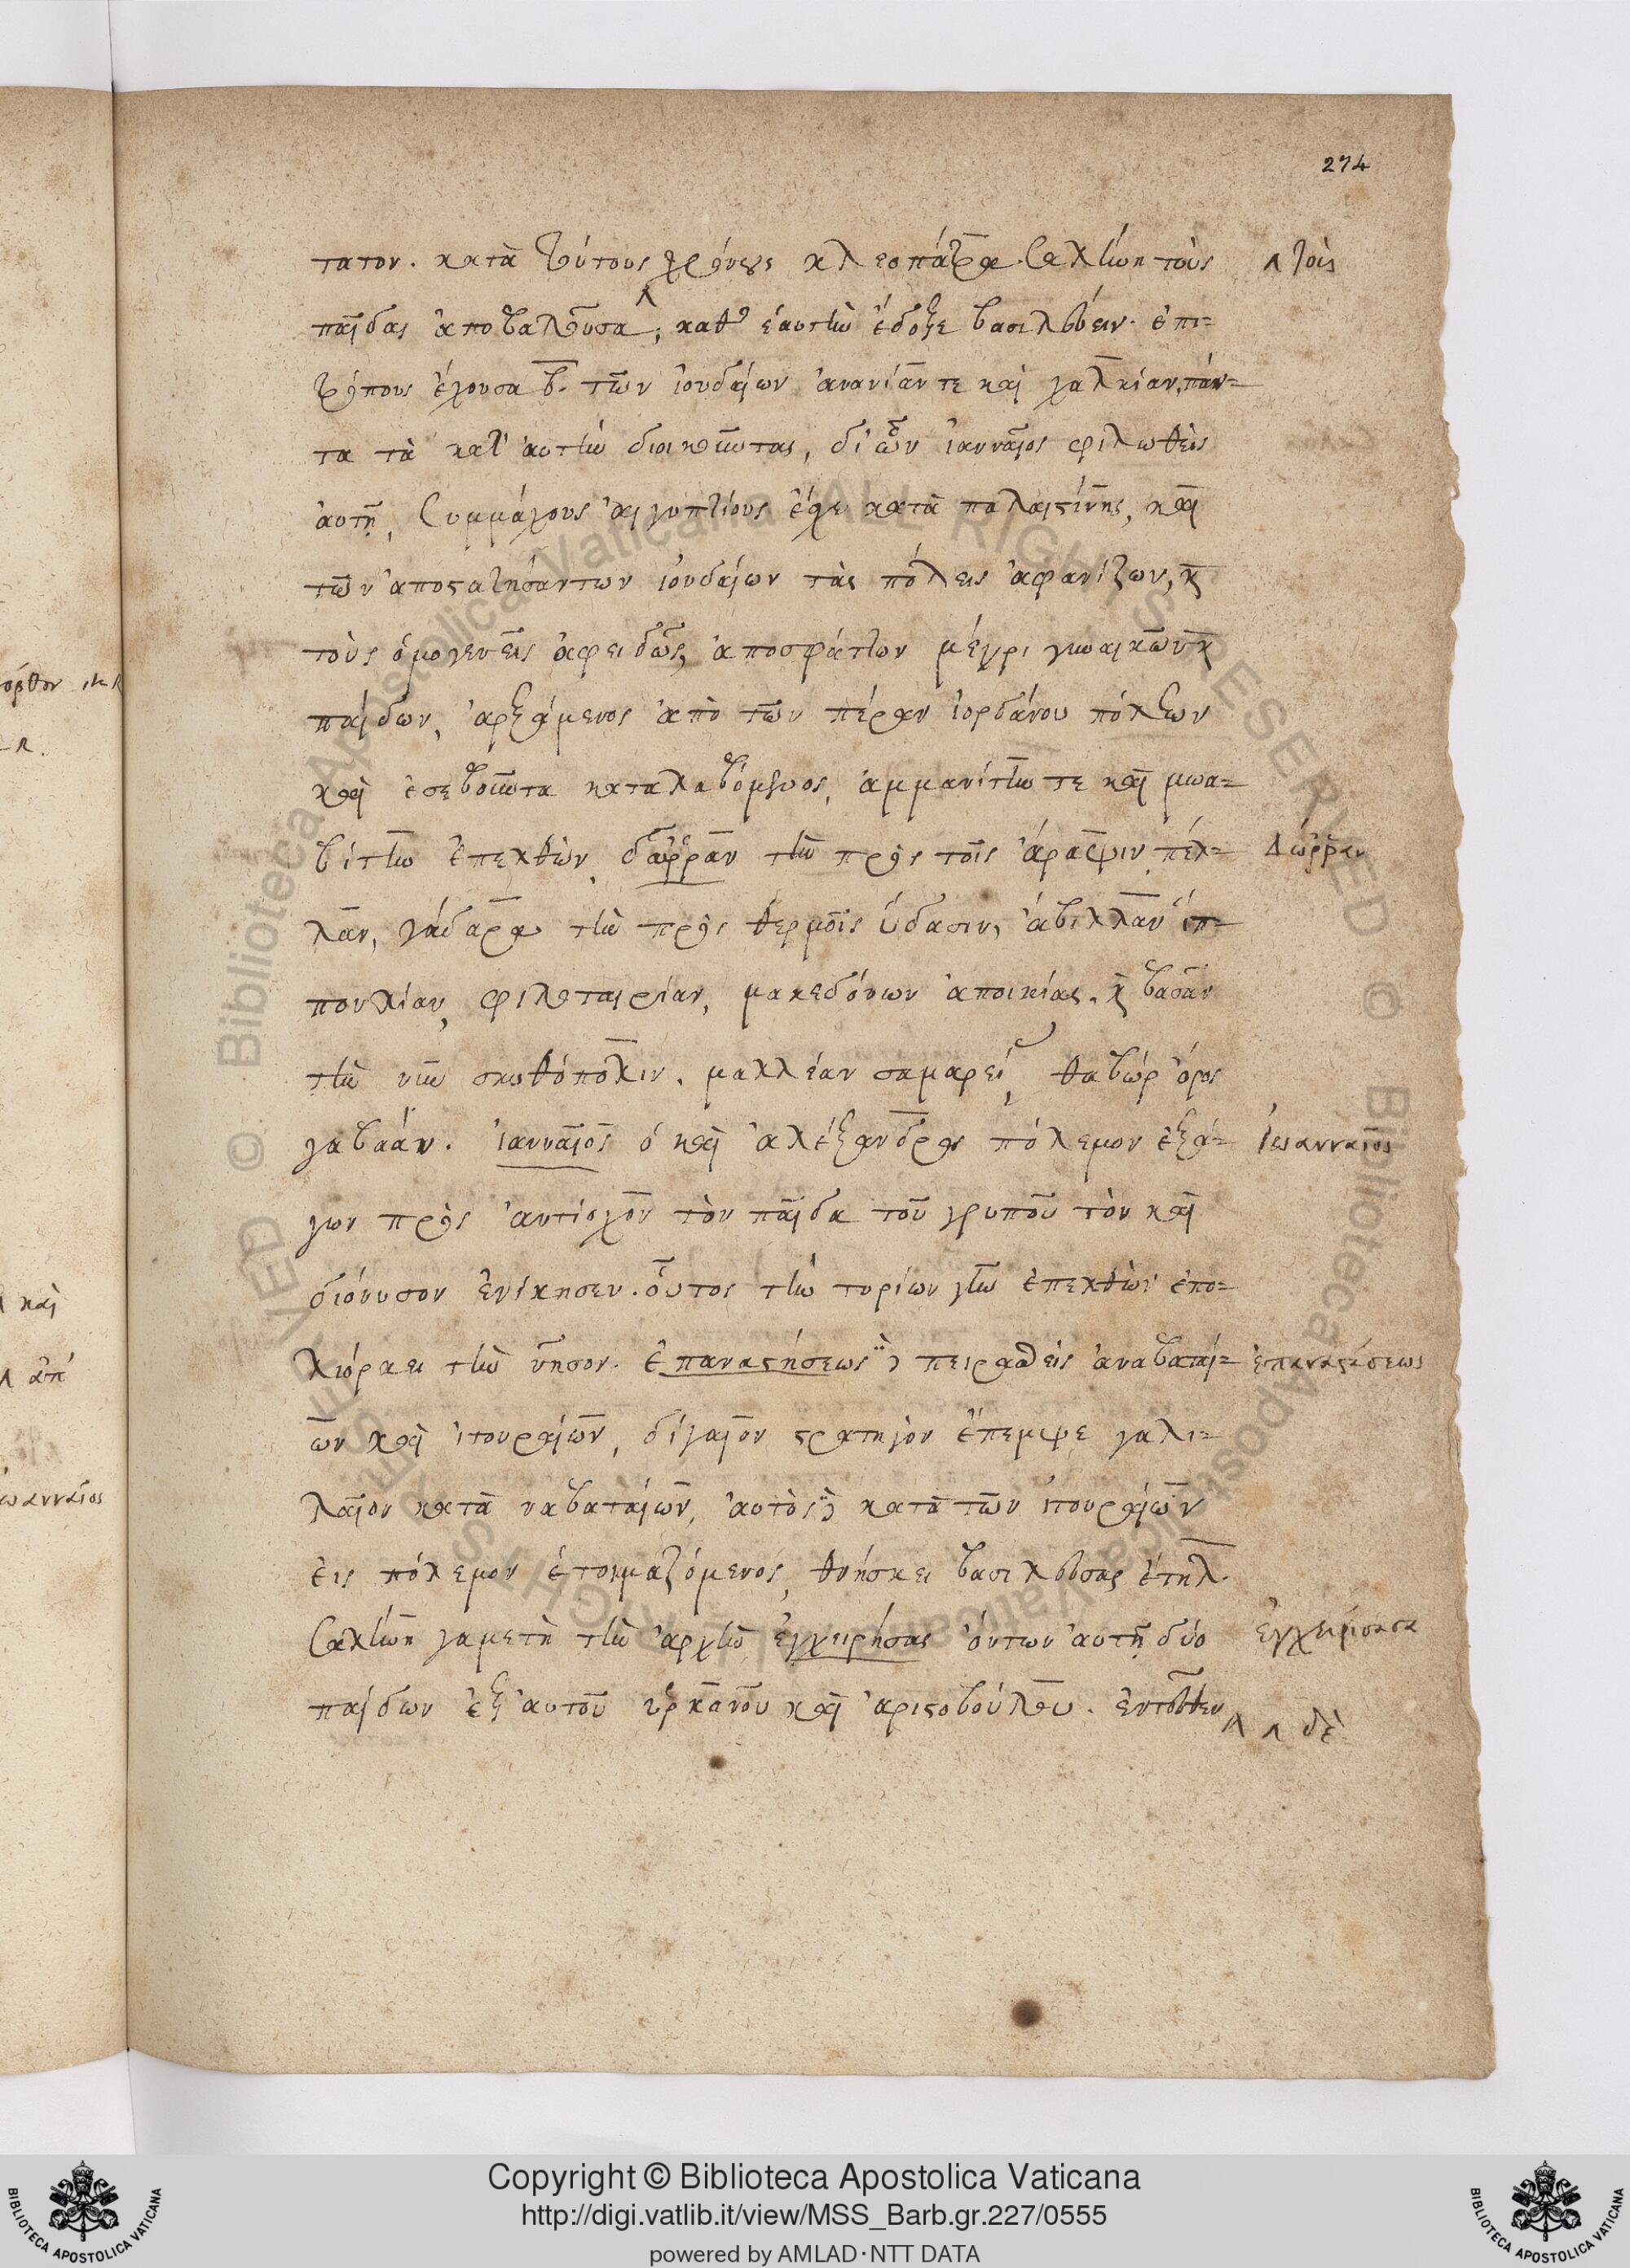 274
τατον. κατὰ τούτους χρόνους κλεοπάτρα σαλίνη τοὺς ʌ τοὺς
παῖδας ἀποβαλοῦσα, καθ' ἑαυτὴν ἔδοξε βασιλεύειν. ἐπι-
τρόπους ἔχουσα β. τῶν ἰουδαίων ἀνανίαν τε καὶ χαλκίαν, πάν-
τα τὰ κατ' αὐτὴν διοικοῦντας, δι' ὧν ἰανναῖος φιλωθεὶς
αὐτῇ, συμμάχους αἰγυπτίους εἶχε κατὰ παλαιστίνης, καὶ
τῶν ἀποστατησάντων ἰουδαίων τὰς πόλεις ἀφανίζων, κ
τοὺς ὁμογενεῖς ἀφειδῶς, ἀποσφάττων μέχρι γυναικῶν κ
παίδων, ἀρξάμενος ἀπὸ τῶν πέραν ἰορδάνου πόλεων
καὶ ἐσεβοῦντα καταλαβόμενος, ἀμμανίτην τε καὶ μωα-
βίτην ἐπελθὼν, δαῤῥὰν τὴν πρὸς τοῖς ἄραψιν, πέλ- Δώῤῥαν
λαν, γάδαρα τὴν πρὸς θερμοῖς ὕδασιν, ἀβιλλὰν ἱπ-
πουλίαν, φιλοταιρίαν, μακεδόνων ἀποικίας. κ βασὰν
τὴν νῦν σκυθόπολιν. μαλλέαν σαμαρεί, θαβὼρ ὄρος
γαβαάν. ἰανναῖος ὁ καὶ ἀλέξανδρος πόλεμον ἐξά- ἰωανναῖος
γων πρὸς ἀντίοχον τὸν παῖδα τοῦ γρυποῦ τὸν καὶ
διόνυσον ἐνίκησεν. οὗτος τὴν τυρίων γῆν ἐπελθὼν ἐπο-
λιόρκει τὴν νῆσον. ἐπαναστήσεως δὲ πειραθεὶς ἀναβαται- ἐπαναστάσεως
ων καὶ ἰτουραίων, δίγαιον στρατηγὸν ἔπεμψε γαλι-
λαῖον κατὰ ναβαταίων, αὐτὸς δὲ κατὰ τῶν ἰτουραίων
εἰς πόλεμον ἑτοιμαζόμενος, θνήσκει βασιλεύσας ἔτη λ.
σαλίνῃ γαμετῇ τὴν ἀρχὴν ἐγχειρήσας ὄντων αὐτῇ δύο ἐγχειρίσασα
παίδων ἐξ αὐτοῦ ὑρκανοῦ καὶ ἀριστοβούλου. ἐντεῦθεν ʌ ʌ δὲ
Copyright © Biblioteca Apostolica Vaticana
http://digi.vatlib.it/view/MSS_Barb.gr.227/0555
powered by AMLAD·NTT DATA